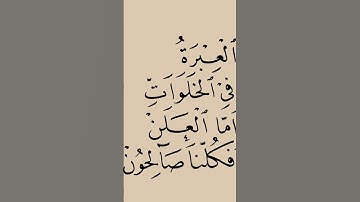 ٱلْعِبْرَةُ
فِي ٱلْخَلَوَاتِّ
اَمَّا ٱلْعَلَنْ
فَكُلّنَا صَآلِحُونْ